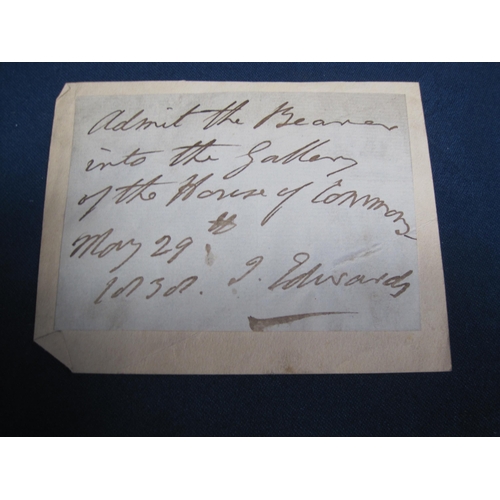 Admit the Bearer
into the Gallery
of the House of Commons
May 29th
1838. J. Edwards